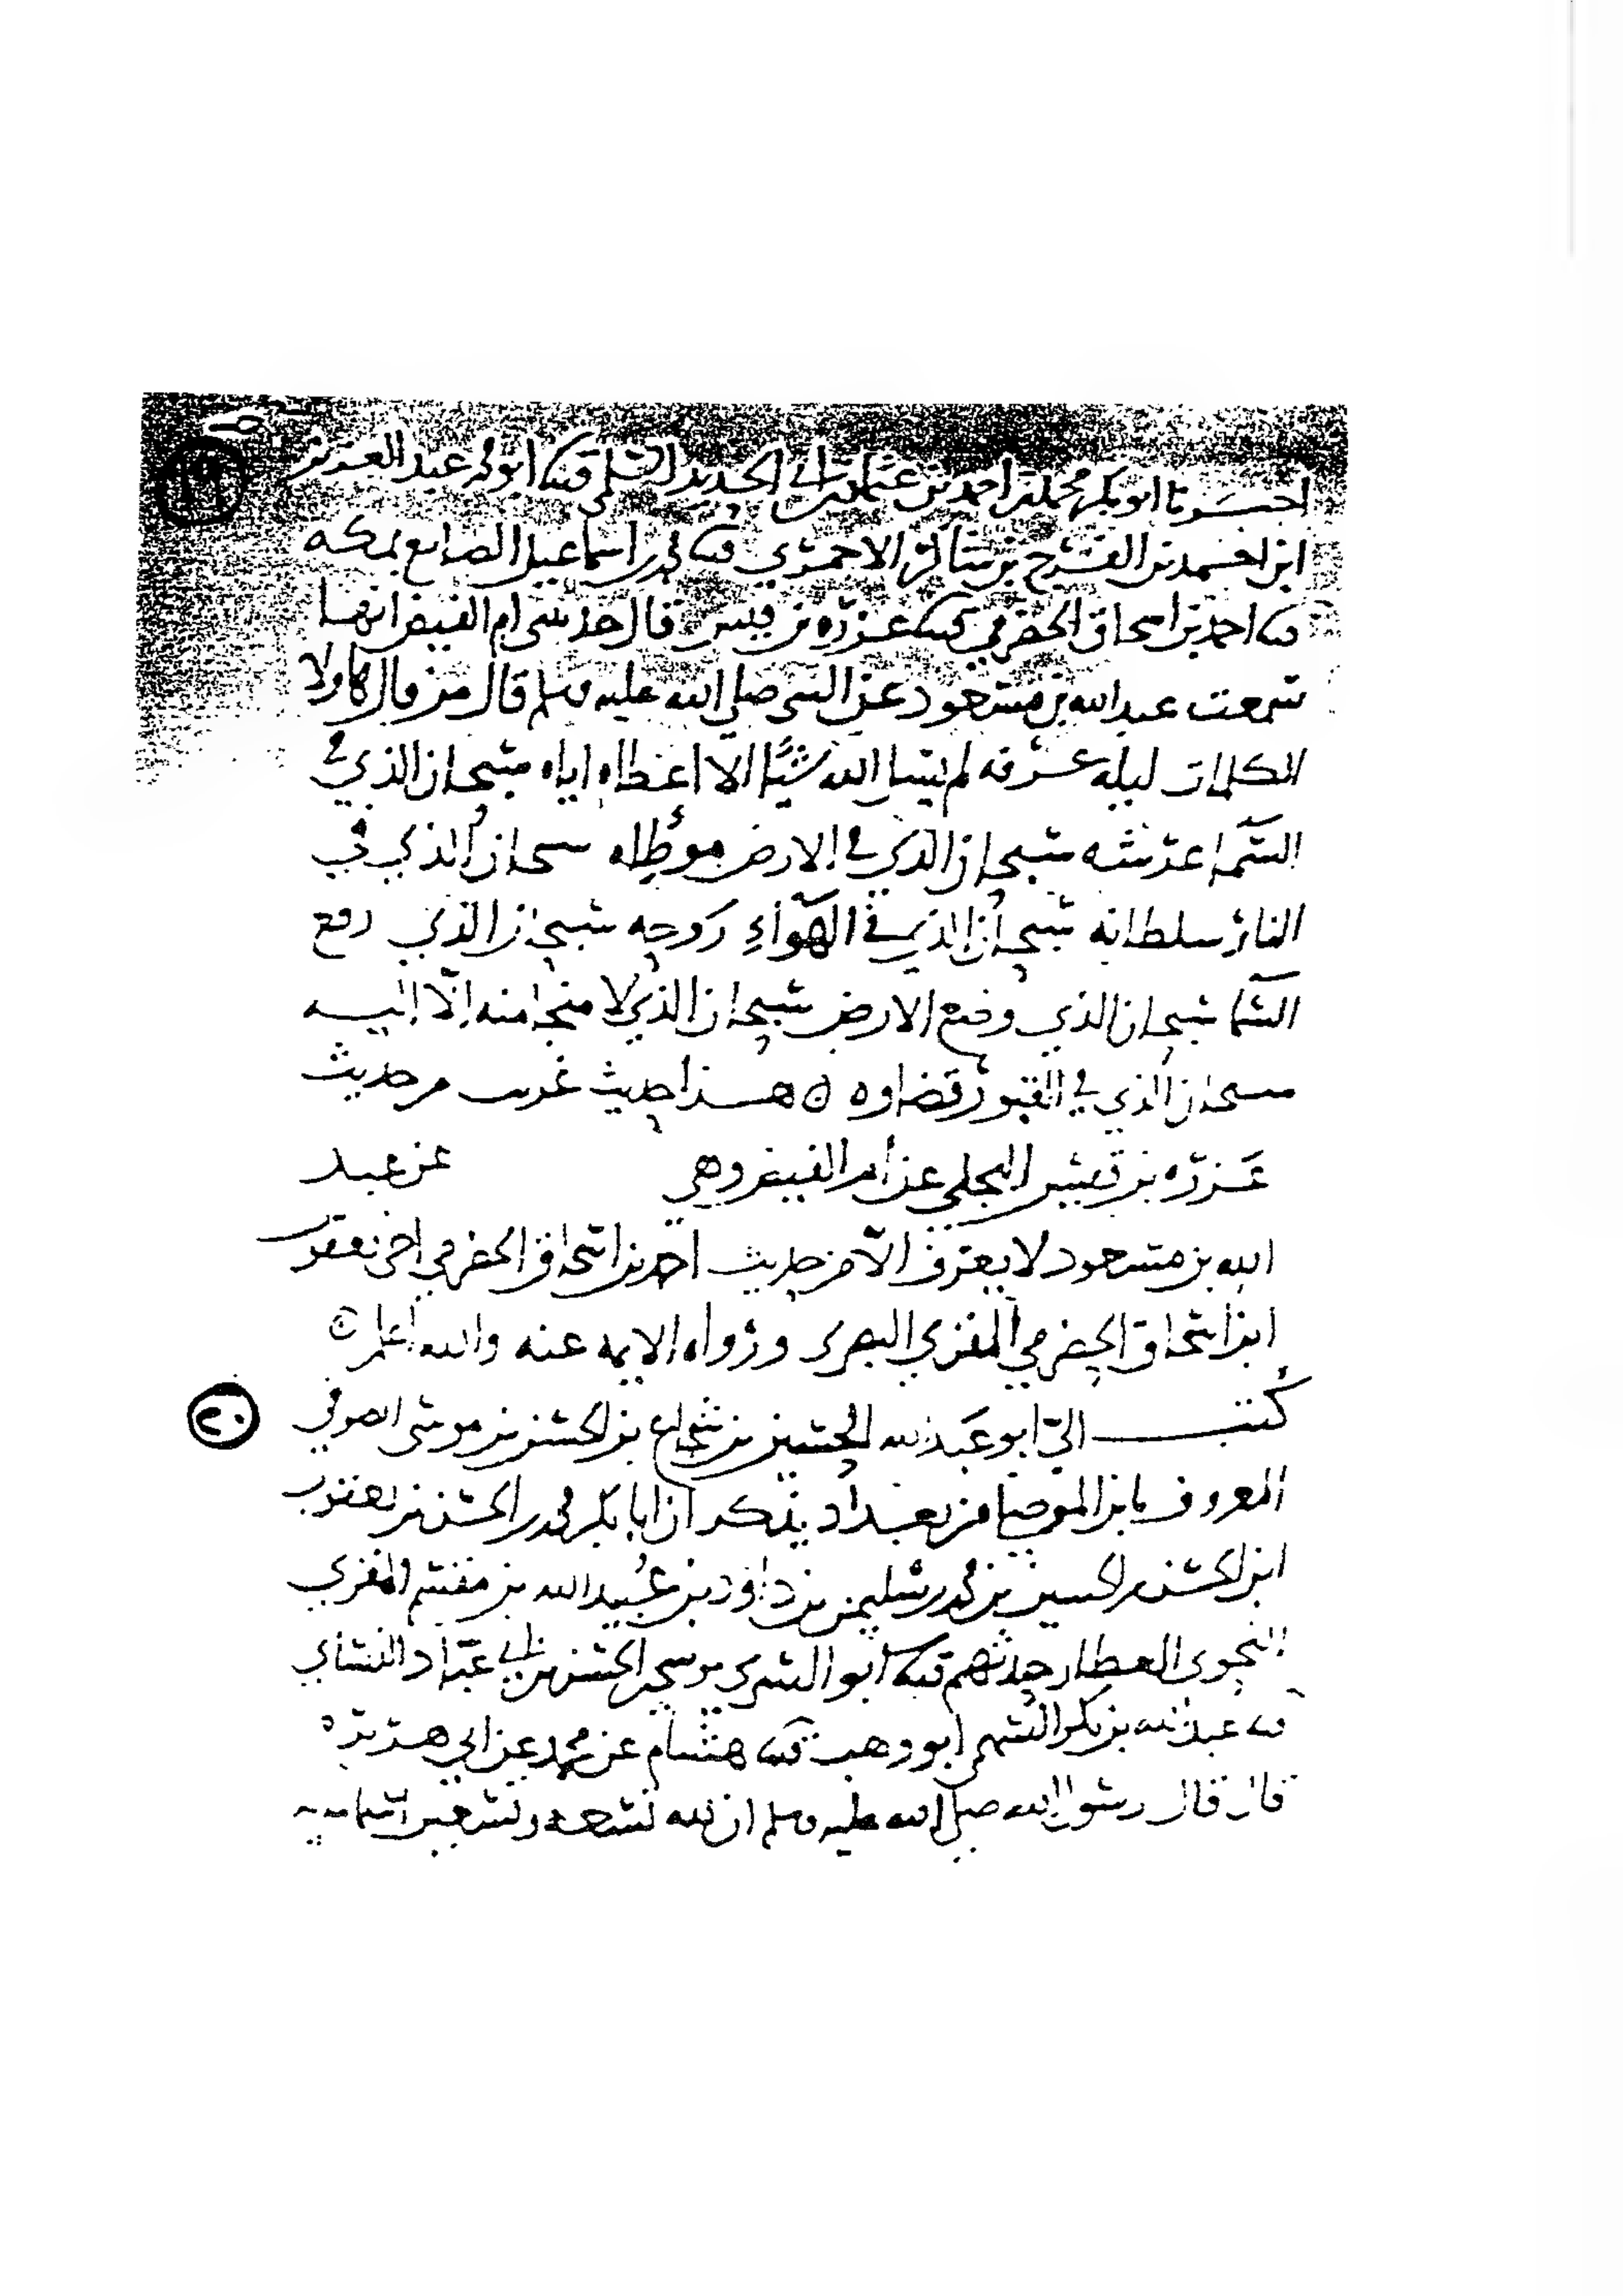 ١٩
اخبرنا ابو بكر محمد بن احمد بن عثمان بن ابي الحديد السلمي ثنا ابو محمد عبد العزيز
ابن احمد بن الفرج بن شاكر الاحمري ثنا محمد بن اسماعيل الصايغ بمكه
ثنا احمد بن اسحاق الحضرمي ثنا عزره بن قيس قال حدثتني ام الفيض انها
سمعت عبد الله بن مسعود عن النبي صلى الله عليه وسلم قال من قال هاولا
الكلمات ليله عرفه لم يسال الله شيًا الا اعطاه اياه سبحان الذي في
السَّمآ عرشه سبحان الذي في الارض موطِئُه سبحان الذي في
النار سلطانه سبحان الذي في الهوآءِ روحه سبحان الذي رفع
السَّمآ سبحان الذي وضع الارض سبحان الذي لا منجا منه اِلّا اليه
سبحان الذي في القبور قضاوه ٥ هذا حديث غريب من حديث
عَزره بن قيس البجلي عن ام الفيض وهي عن عبد
الله بن مسعود لا يعرف الا من حديث احمد بن اسحاق الحضرمي اخي يعقوب
ابن اسحاق الحضرمي المقري البصري ورواه الايمه عنه والله اعلم ٥
كُتب اليّ ابو عَبد الله الحسين بن شجاع بن الحسن بن موسى الصوفي
٢٠
المعروف بابن الموصلي من بغداد يذكر ان ابا بكر محمد بن الحسن بن يعقوب
ابن الحسن بن الحسين بن محمد بن سليمن بن داوُد بن عُبيد الله بن مقسم المقري
النحوي العطار حدثهم ثنا ابو السري موسى بن الحسن بن ابي عبّاد النسائي
ثنا عبد الله بن بكر السهمي ابو وهب ثنا هشام عن محمد عن ابي هريره
قال قال رسول الله صلى الله عليه وسلم ان لله تسعه وتسعين اسما